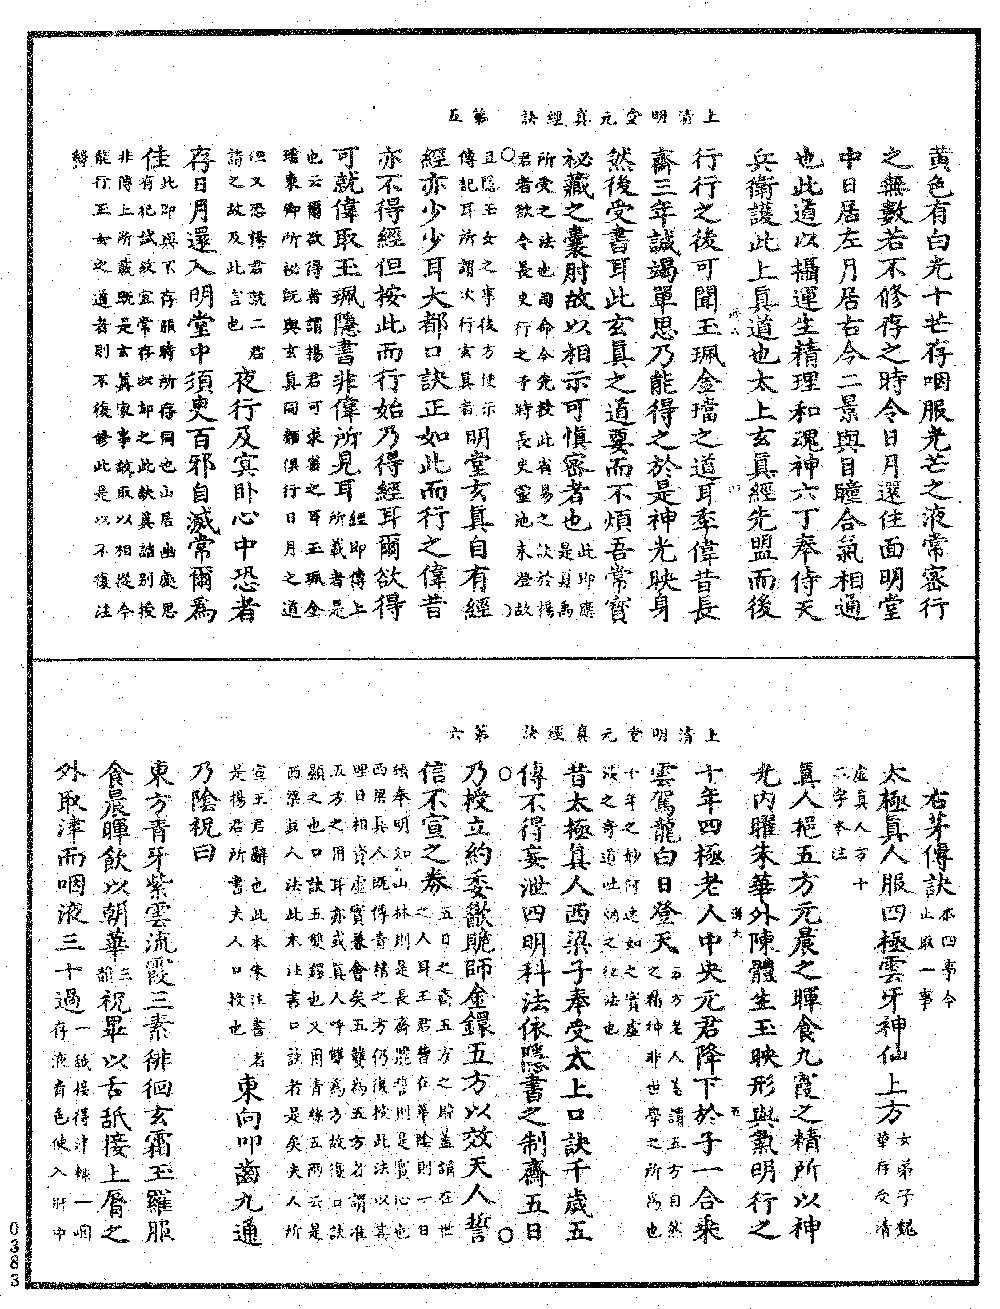 上清明堂元真經訣　第五
黃色有白光十芒存咽服光芒之液常密行
之無數若不修存之時令日月還住面明堂
中日居左月居右令二景與目瞳合氣相通
也此道以攝運生精理和魂神六丁奉侍天
兵衛護此上真道也太上玄真經先盟而後
行行之後可聞玉珮金璫之道耳季偉昔長
齋三年誠竭單思乃能得之於是神光映身
然後受書耳此玄真之道要而不煩吾常寶
祕藏之囊肘故以相示可慎密者也此即應是司命
所受之法也司命令先授此省易之訣於楊
君者欲令長史行之于時長史靈池未澄故
且隱玉女之事後方使示
傳記耳所謂次行玄真者明堂玄真自有經
經亦少少耳大都口訣正如此而行之偉昔
亦不得經但按此而行始乃得經耳爾欲得
可就偉取玉珮隱書非偉所見耳經即傳上所載者是
也云爾欲得者謂楊君可求寫之耳玉珮金
璫東卿所祕既與玄真同類俱行日月之道
但又恐楊君就二君
請之故及此言也　夜行及冥臥心中恐者
存日月還入明堂中須臾百邪自滅常爾為
佳此即與不存服時所存同也山居幽處思
有犯試故宜常存以卻之此訣真誥別授
非傳上所載既是玄真家事故取以相從今
能行玉女之道者則不復修此是以不復注
解
上清明堂元真經訣　第六
右茅傳訣本四事今止取一事
太極真人服四極雲牙神仙上方女弟子魏華存受清
虛真人方十
二字本注
真人挹五方元晨之暉食九霞之精所以神
光內曜朱華外陳體生玉映形與氣明行之
十年四極老人中央元君降下於子一合乘
雲駕龍白日登天五方老人蓋謂五方自然之精神非世學之所為也
十年之妙何速如之寶處
談之奇道吐納之秘法也
昔太極真人西梁子奉受太上口訣千歲五
傳不得妄泄四明科法依隱書之制齋五日
乃授立約委歃跪師金鐶五方以效天人誓
信不宣之券五日之齋五方之賂蓋謂在世之人耳王君昔在華陰則一日
頓奉明知山林則是長齋罷誓則是寶心也
西梁真人既傳青精之方仍復授此法以其
理日相資虛實兼會矣五雙為五方者謂准
五方之用耳亦或真人呼雙為方故復口訣
顯之也口訣五雙鐶也又用青絲五兩云是
西梁真人法此未注書口訣者是矣夫人所
宣王君辭也此本朱注書者
是楊君所書夫人口授也　東向叩齒九通
乃陰祝曰
東方青牙紫雲流霞三素徘徊玄霜玉羅服
食晨暉飲以朝華三韻祝畢以舌舐接上脣之
外取津而咽液三十過一舐接得津輒一咽存液青色使入肝中
0383